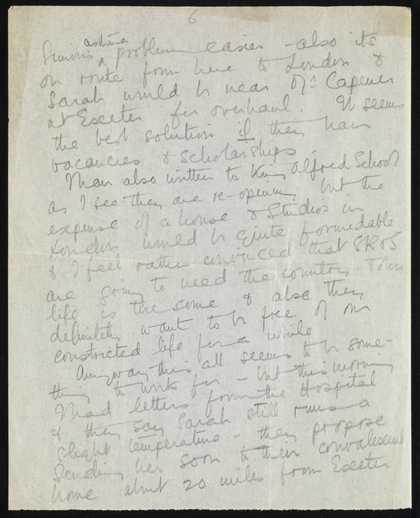 6
asthma
Simon's problem easier - also its
on route from here to London &
Sarah would be near Mr Capener
at Exeter for overhaul. It seems
the best solution if they have
vacancies & scholarships.
I have also written to King Alfred School
as I see they are re-opening but the
expense of a house & Studios in
London would be quite formidable
& I feel rather convinced that S R & S
are going to need the country. Town
life is the same & also they
definitely want to be free of our
constricted life for a while
Anyway - this all seems to be some-
thing to work for - but this morning
I had letters from the Hospital
& they say Sarah still runs a
slight temperature - they propose
sending her soon to their convalescent
home about 20 miles from Exeter